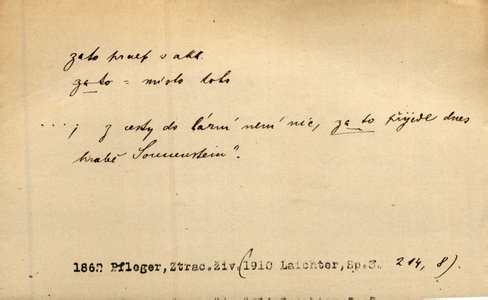 zato praep s akk.
za to = místo toho
...; z cesty do lázní není nic, za to přijede dnes
hrabě Sonnenstein".
1862 Pfleger, Ztrac.živ.(1910 Laichter, Sp.3. 214, 8).